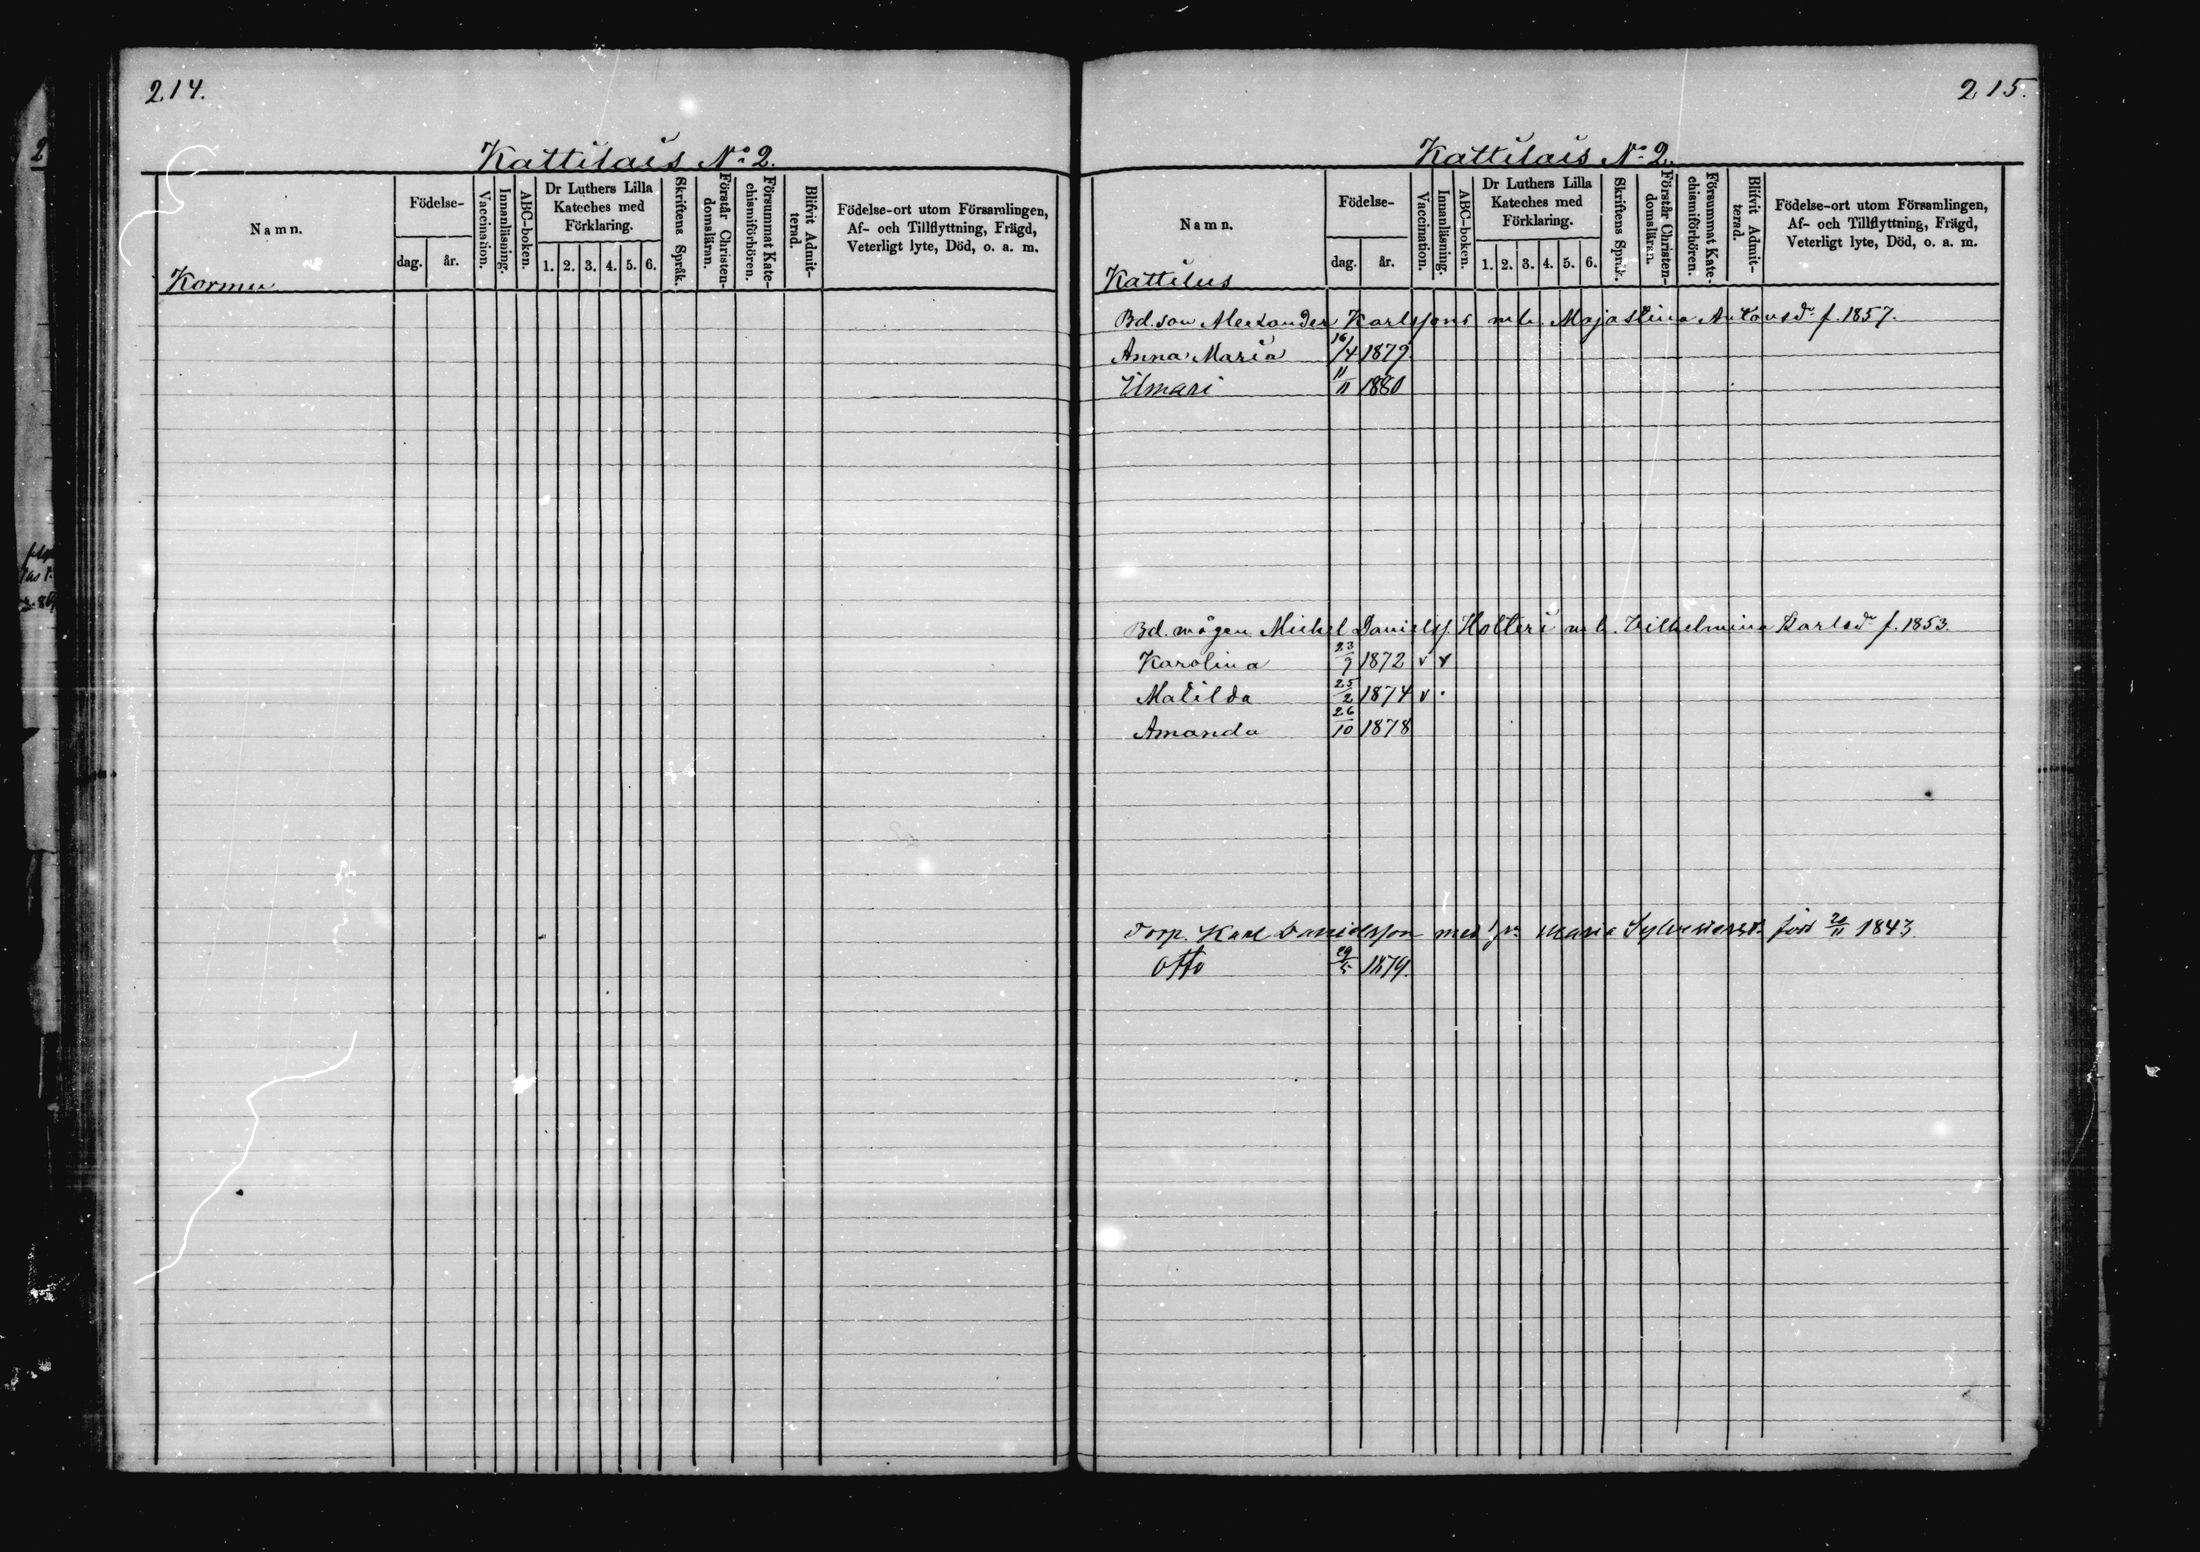 214.
Kattilais No 2.
Namn.
Födelse-
dag.
år.
Vaccination.
Innanläsning.
ABC-boken.
Dr Luthers Lilla
Kateches med
Förklaring.
1. 2. 3. 4. 5. 6.
Skriftens Språk.
Förstår Christen-
domsläran.
Försummat Kate-
chismiförhören.
Blifvit Admit-
terad.
Födelse-ort utom Församlingen,
Af- och Tillflyttning, Frägd,
Veterligt lyte, Död, o. a. m.
Kormu
215.
Kattilais No 2.
Namn.
Födelse-
dag.
år.
Vaccination.
Innanläsning.
ABC-boken.
Dr Luthers Lilla
Kateches med
Förklaring.
1. 2. 3. 4. 5. 6.
Skriftens Språk.
Förstår Christen-
domsläran.
Försummat Kate-
chismiförhören.
Blifvit Admit-
terad.
Födelse-ort utom Församlingen,
Af- och Tillflyttning, Frägd,
Veterligt lyte, Död, o. a. m.
Kattilus
Bd. son Alexander Karlssons m h. Majastina Antonsdr f. 1857.
Anna Maria 16/4 1879
Ilmari 11/11 1880
Bd. mågen Michel Danielss. Holteri m h. Vilhelmina Karlsdr f. 1853.
Karolina 23/9 1872 v v
Matilda 25/2 1874 v .
Amanda 26/10 1878
Torp. Karl Danielsson med Maria född 20/11 1843.
Otto 29/5 1879.